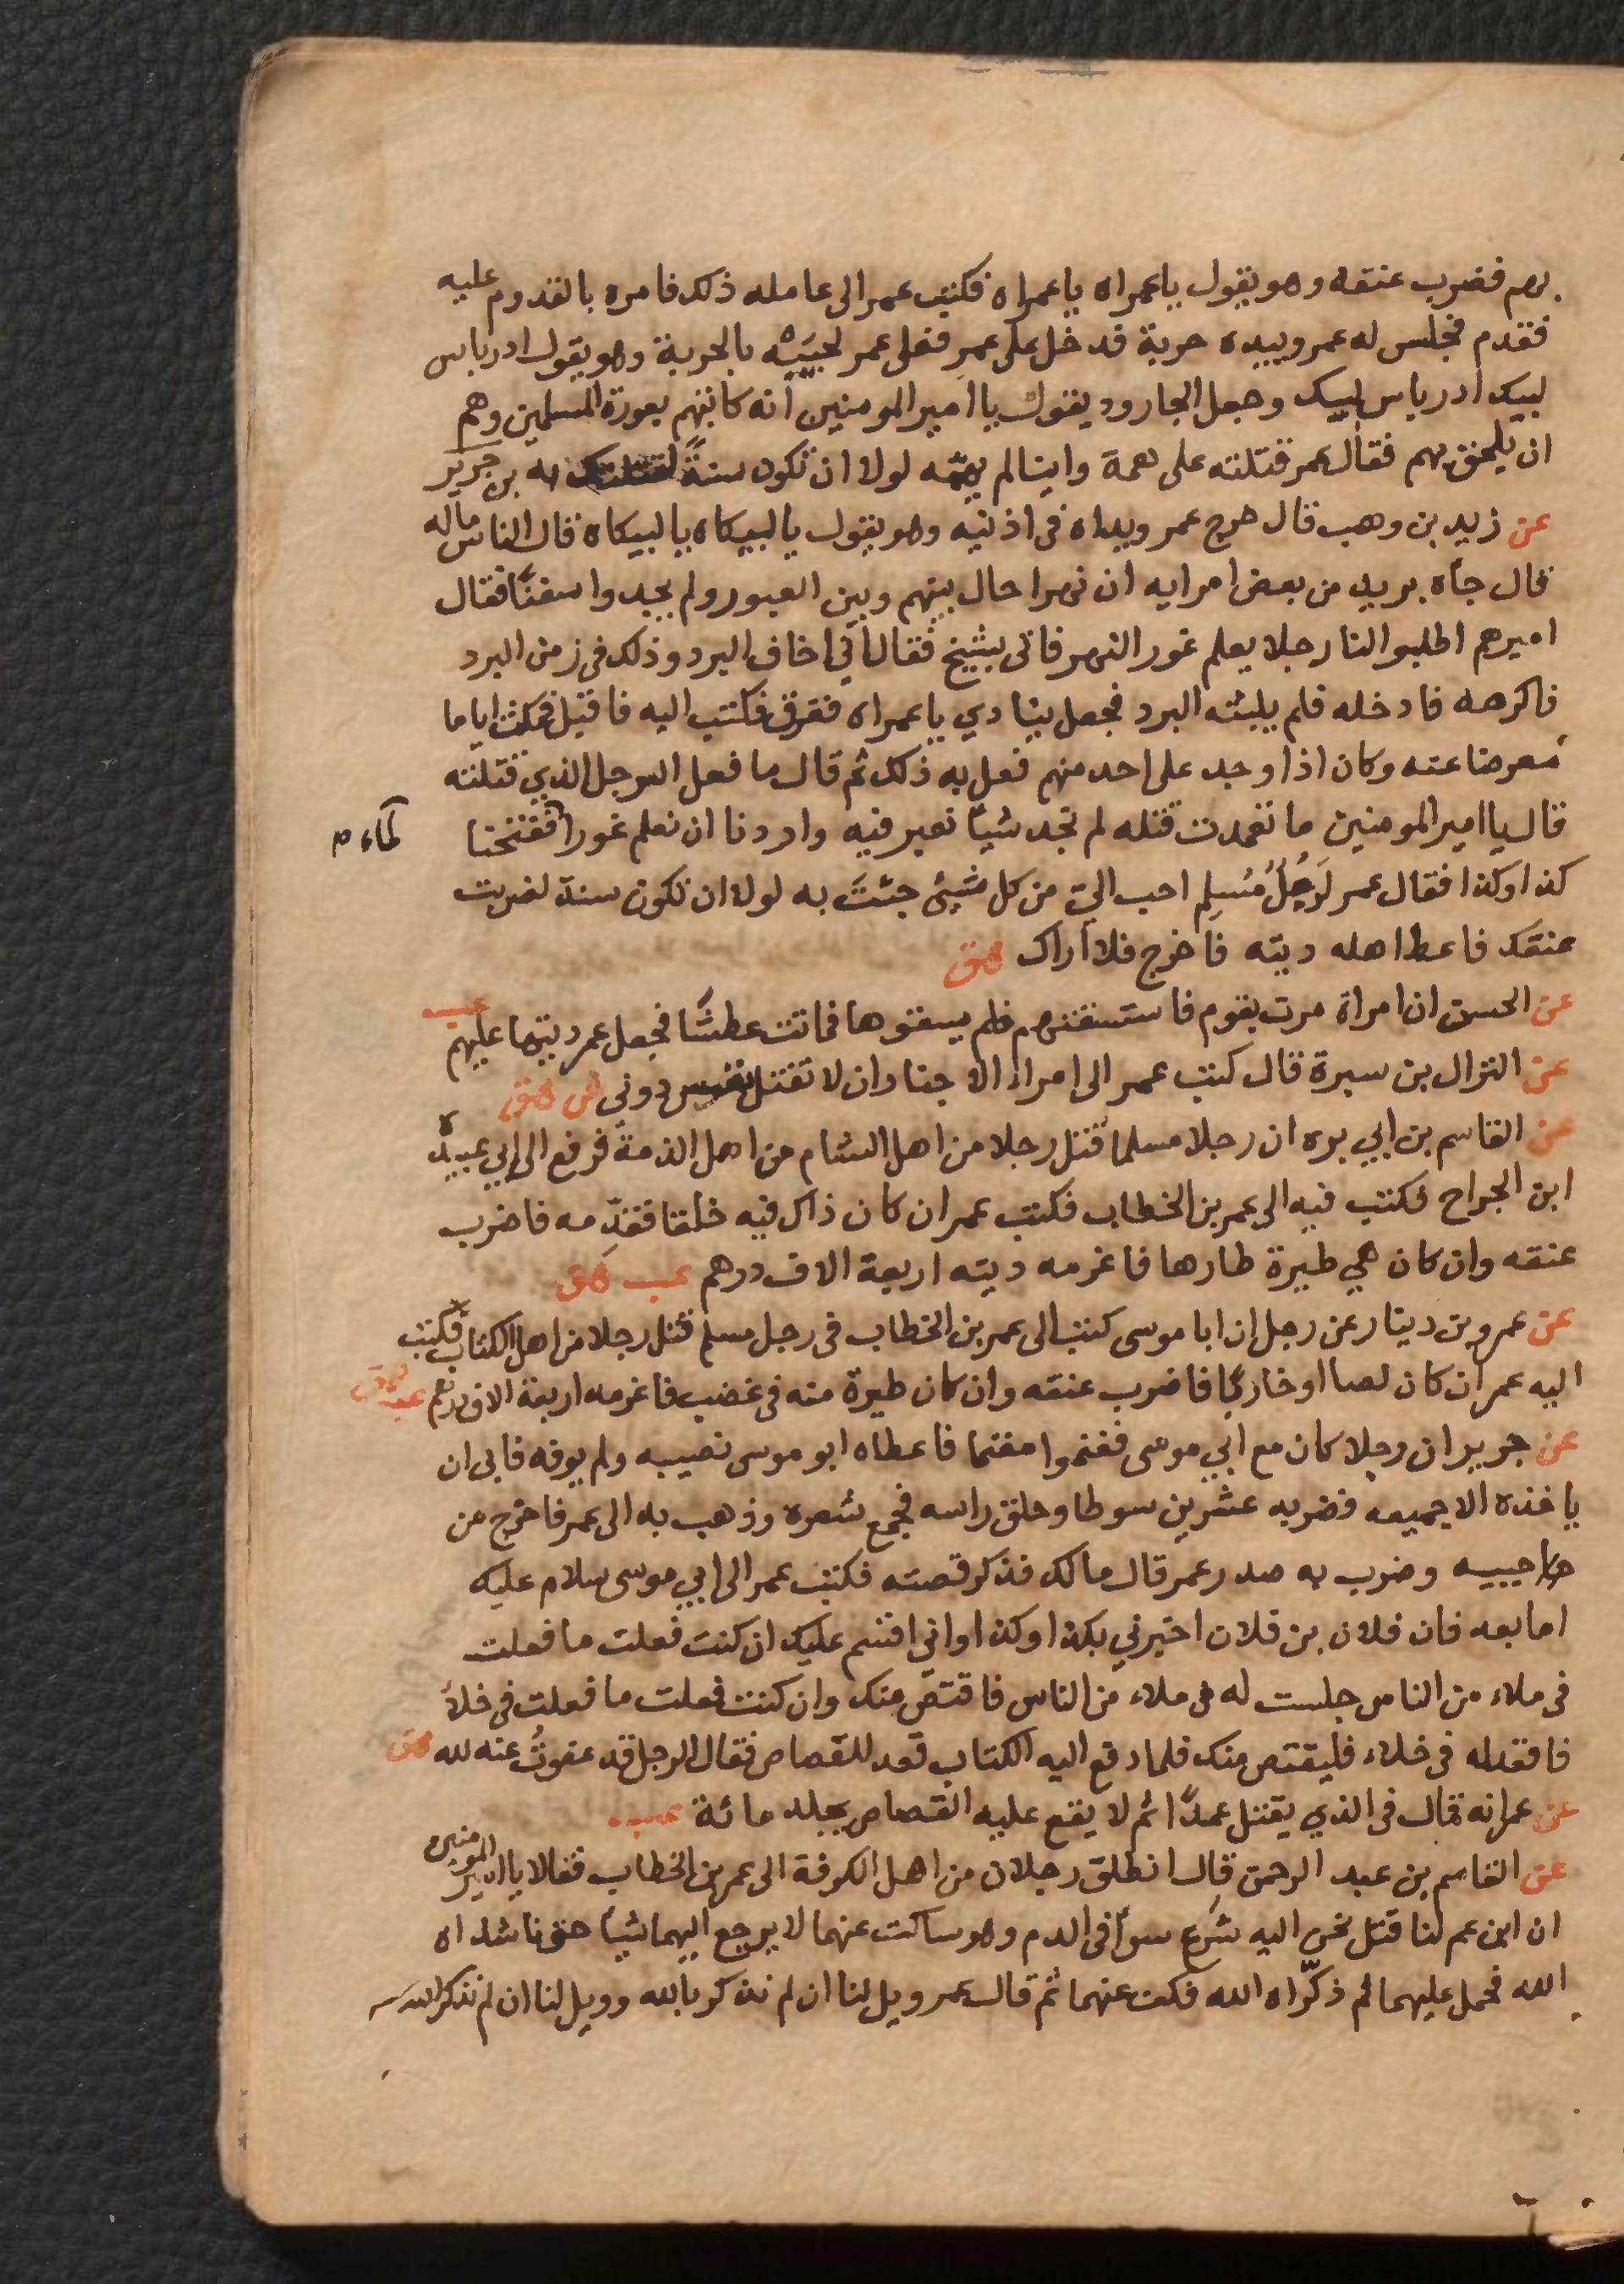 بهم فضرب عنقه وهو يقول يا عمراه يا عمراه فكتب عمر الى عامله ذلك فامره بالقدوم عليه
فقدم فجلس له عمر وبيده حربة فدخل على عمر فعلى عمر لحييه بالحربة وهو يقول ادرباس
لبيك ادرباس لبيك وجعل الجارود يقول يا امير المومنين انه كاتبهم بعورة المسلمين وهم
ان يلحق بهم فقال عمر قتلته على همة واينا لم يهمه لولا ان تكون سنةً لقتلتك به بن جرير
عن زيد بن وهب قال خرج عمر ويداه في اذنيه وهو يقول يا لبيكاه يا لبيكاه قال الناس ماله
قال جاه بريد من بعض امرايه ان نهرا حال بينهم وبين العبور ولم يجدوا سفنًا فقال
اميرهم اطلبوا لنا رجلا يعلم غور النهر فاتى بشيخ فقال اني اخاف البرد وذلك في زمن البرد
فاكرهه فادخله فلم يلبثه البرد فجعل ينادي يا عمراه فغرق فكتب اليه فاقبل فمكث اياما
معرضا عنه وكان اذا وجد على احد منهم فعل به ذلك ثم قال ما فعل الرجل الذي قتلته
قال يا امير المومنين ما تعمدت قتله لم نجد شيأ نعبر فيه واردنا ان نعلم غور الماء ففتحنا
كذا وكذا فقال عمر لَرَجُلٌ مُسْلِم احب الي من كل شيئ جئتَ به لولا ان تكون سنة لضربت
عنقك فاعط اهله ديته فاخرج فلا اراك هق
عن الحسن ان امراة مرت بقوم فاستسقتهم فلم يسقوها فماتت عطشًا فجعل عمر ديتها عليهم عب
عن النزال بن سبرة قال كتب عمر الى امراء الاجناد ان لا تقتل نفس دوني ش هق
عن القاسم بن ابي بزه ان رجلا مسلما قتل رجلا من اهل الشام من اهل الذمة فرفع الى ابي عبيدة
ابن الجراح فكتب فيه الى عمر بن الخطاب فكتب عمر ان كان ذاك فيه خلقا فقدِّمه فاضرب
عنقه وان كان هي طيرة طارها فاغرمه ديته اربعة الاف درهم عب هق
عن عمرو بن دينار عن رجل ان ابا موسى كتب الى عمر بن الخطاب في رجل مسلم قتل رجلا من اهل الكتاب فكتب
اليه عمر ان كان لصا او خاربًا فاضرب عنقه وان كان طيرة منه في غضب فاغرمه اربعة الاف درهم عب هق
عن جرير ان رجلا كان مع ابي موسى فغنموا مغنما فاعطاه ابو موسى نصيبه ولم يوفه فابى ان
ياخذه الا جميعه فضربه عشرين سوطا وحلق راسه فجمع شعره وذهب به الى عمر فاخرج من
جيبه وضرب به صدر عمر قال مالك فذكر قصته فكتب عمر الى ابي موسى سلام عليك
اما بعد فان فلان بن فلان اخبرني بكذا وكذا واني اقسم عليك ان كنت فعلت ما فعلت
في ملاء من الناس جلست له في ملاء من الناس فاقتص منك وان كنت فعلت ما فعلت في خلأ
فاقعد له في خلاء فليقتص منك فلما دفع اليه الكتاب قعد للقصاص فقال الرجل قد عفوتُ عنه لله هق
عن عمر انه قال في الذي يقتل عمدًا ثم لا يقع عليه القصاص يجلد مائة عب
عن القاسم بن عبد الرحمن قال انطلق رجلان من اهل الكوفة الى عمر بن الخطاب فقالا يا امير المومنين
ان ابن عم لنا قتل نحن اليه شَرَع سوأ في الدم وهو ساكت عنهما لا يرجع اليهما شيأ حتى ناشداه
الله فحمل عليهما ثم ذكّراه الله فكف عنهما ثم قال عمر ويل لنا ان لم نذكر بالله وويل لنا ان لم نذكر الله